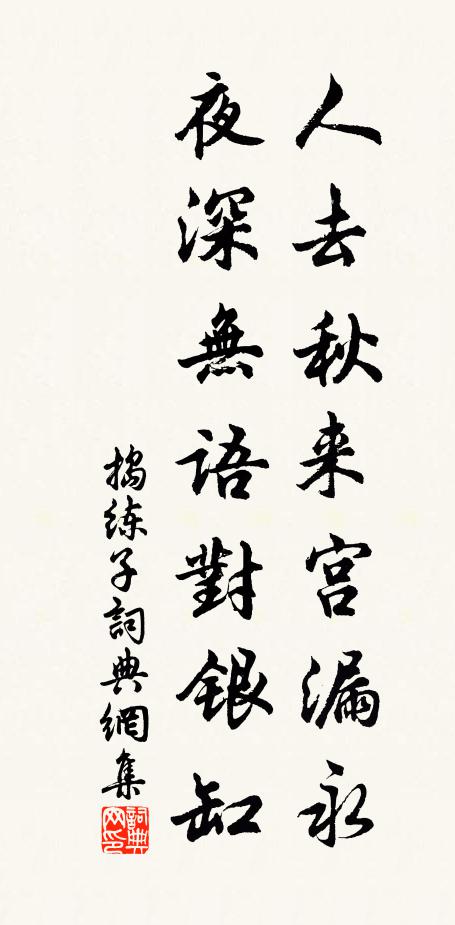 人去秋来宫漏永
夜深無語對銀缸
搗练子詞典網集
詞典网印